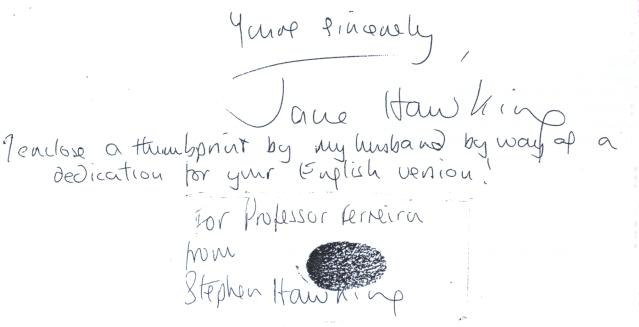 Yours sincerely,
Jane Hawking
I enclose a thumbprint by my husband by way of a
dedication for your English version!
For Professor Ferreira
from
Stephen Hawking